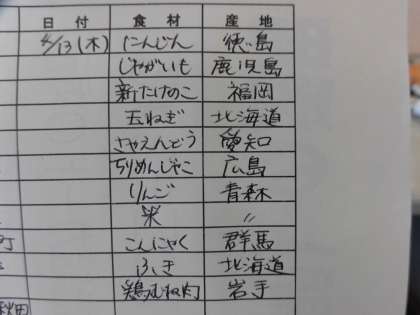 日付 食材 産地
4/13(木) にんじん 徳島
じゃがいも 鹿児島
新たけのこ 福岡
玉ねぎ 北海道
さやえんどう 愛知
ちりめんじゃこ 広島
りんご 青森
米 〃
こんにゃく 群馬
ふき 北海道
鶏むね肉 岩手